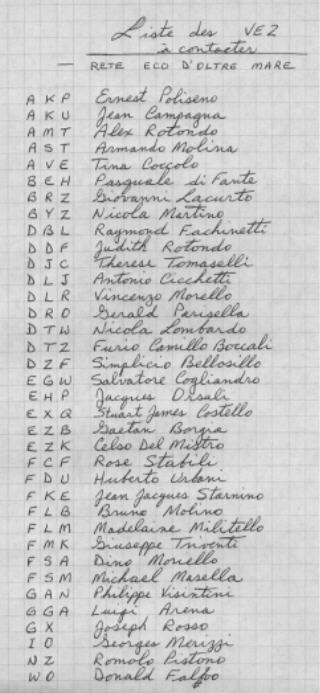 Liste des VE2
à contacter
— RETE ECO D'OLTRE MARE
AKP Ernest Poliseno
AKU Jean Campagna
AMT Alex Rotondo
AST Armando Molina
AVE Tina Coccolo
BEH Pasquale di Fante
BRZ Giovanni Lacurto
BYZ Nicola Martino
DBL Raymond Fachinetti
DDF Judith Rotondo
DJC Therese Tomaselli
DLJ Antonio Cicchetti
DLR Vincenzo Morello
DRO Gerald Parisella
DTW Nicola Lombardo
DTZ Furio Camillo Boccali
DZF Simplicio Bellosillo
EGW Salvatore Cogliandro
EHP Jacques Orsali
EXQ Stuart James Costello
EZB Gaetan Borgia
EZK Celso Del Mistro
FCF Rose Stabili
FDU Huberto Urbani
FKE Jean Jacques Starnino
FLB Bruno Molino
FLM Madelaine Militello
FMK Giuseppe Triventi
FSA Dino Moriello
FSM Michael Masella
GAN Philippe Visintini
GGA Luigi Arena
GX Joseph Rosso
IO Georges Merizzi
NZ Romolo Pistono
WO Donald Falfoo